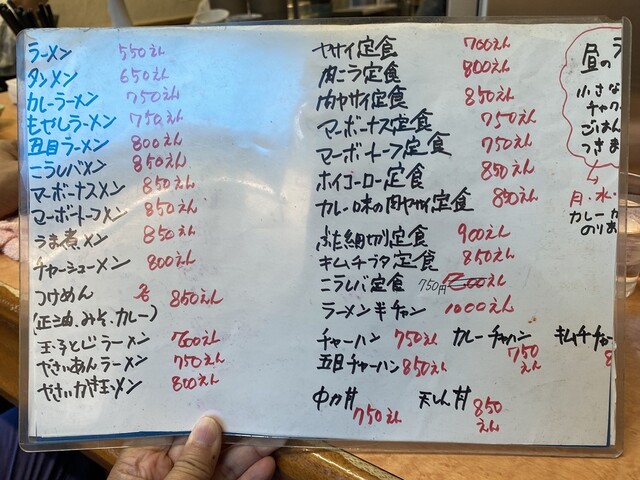 ラーメン 550えん
タンメン 650えん
カレーラーメン 750えん
もやしラーメン 750えん
五目ラーメン 800えん
ニラレバメン 850えん
マーボーナスメン 850えん
マーボートーフメン 850えん
うま煮メン 850えん
チャーシューメン 800えん
つけめん 各 850えん
(正油、みそ、カレー)
玉子とじラーメン 700えん
やさいあんラーメン 750えん
やさいかき玉メン 800えん
ヤサイ定食 700えん
肉ニラ定食 800えん
肉ヤサイ定食 850えん
マーボーナス定食 750えん
マーボートーフ定食 750えん
ホイコーロー定食 850えん
カレー味の肉ヤサイ定食 850えん
ぶた細切り定食 900えん
キムチブタ定食 850えん
ニラレバ定食 750円
ラーメン半チャン 1000えん
チャーハン 750えん カレーチャハン 750えん キムチチャー 8
五目チャーハン 850えん
中カ丼 750えん 天しん丼 850えん
ラ
昼の
小さな
チャー
ごはん
つきま
月・水・
カレーか
のりお